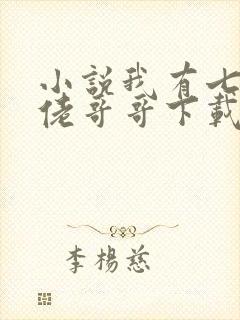 小說我有七
佬哥哥下載
李楊慈